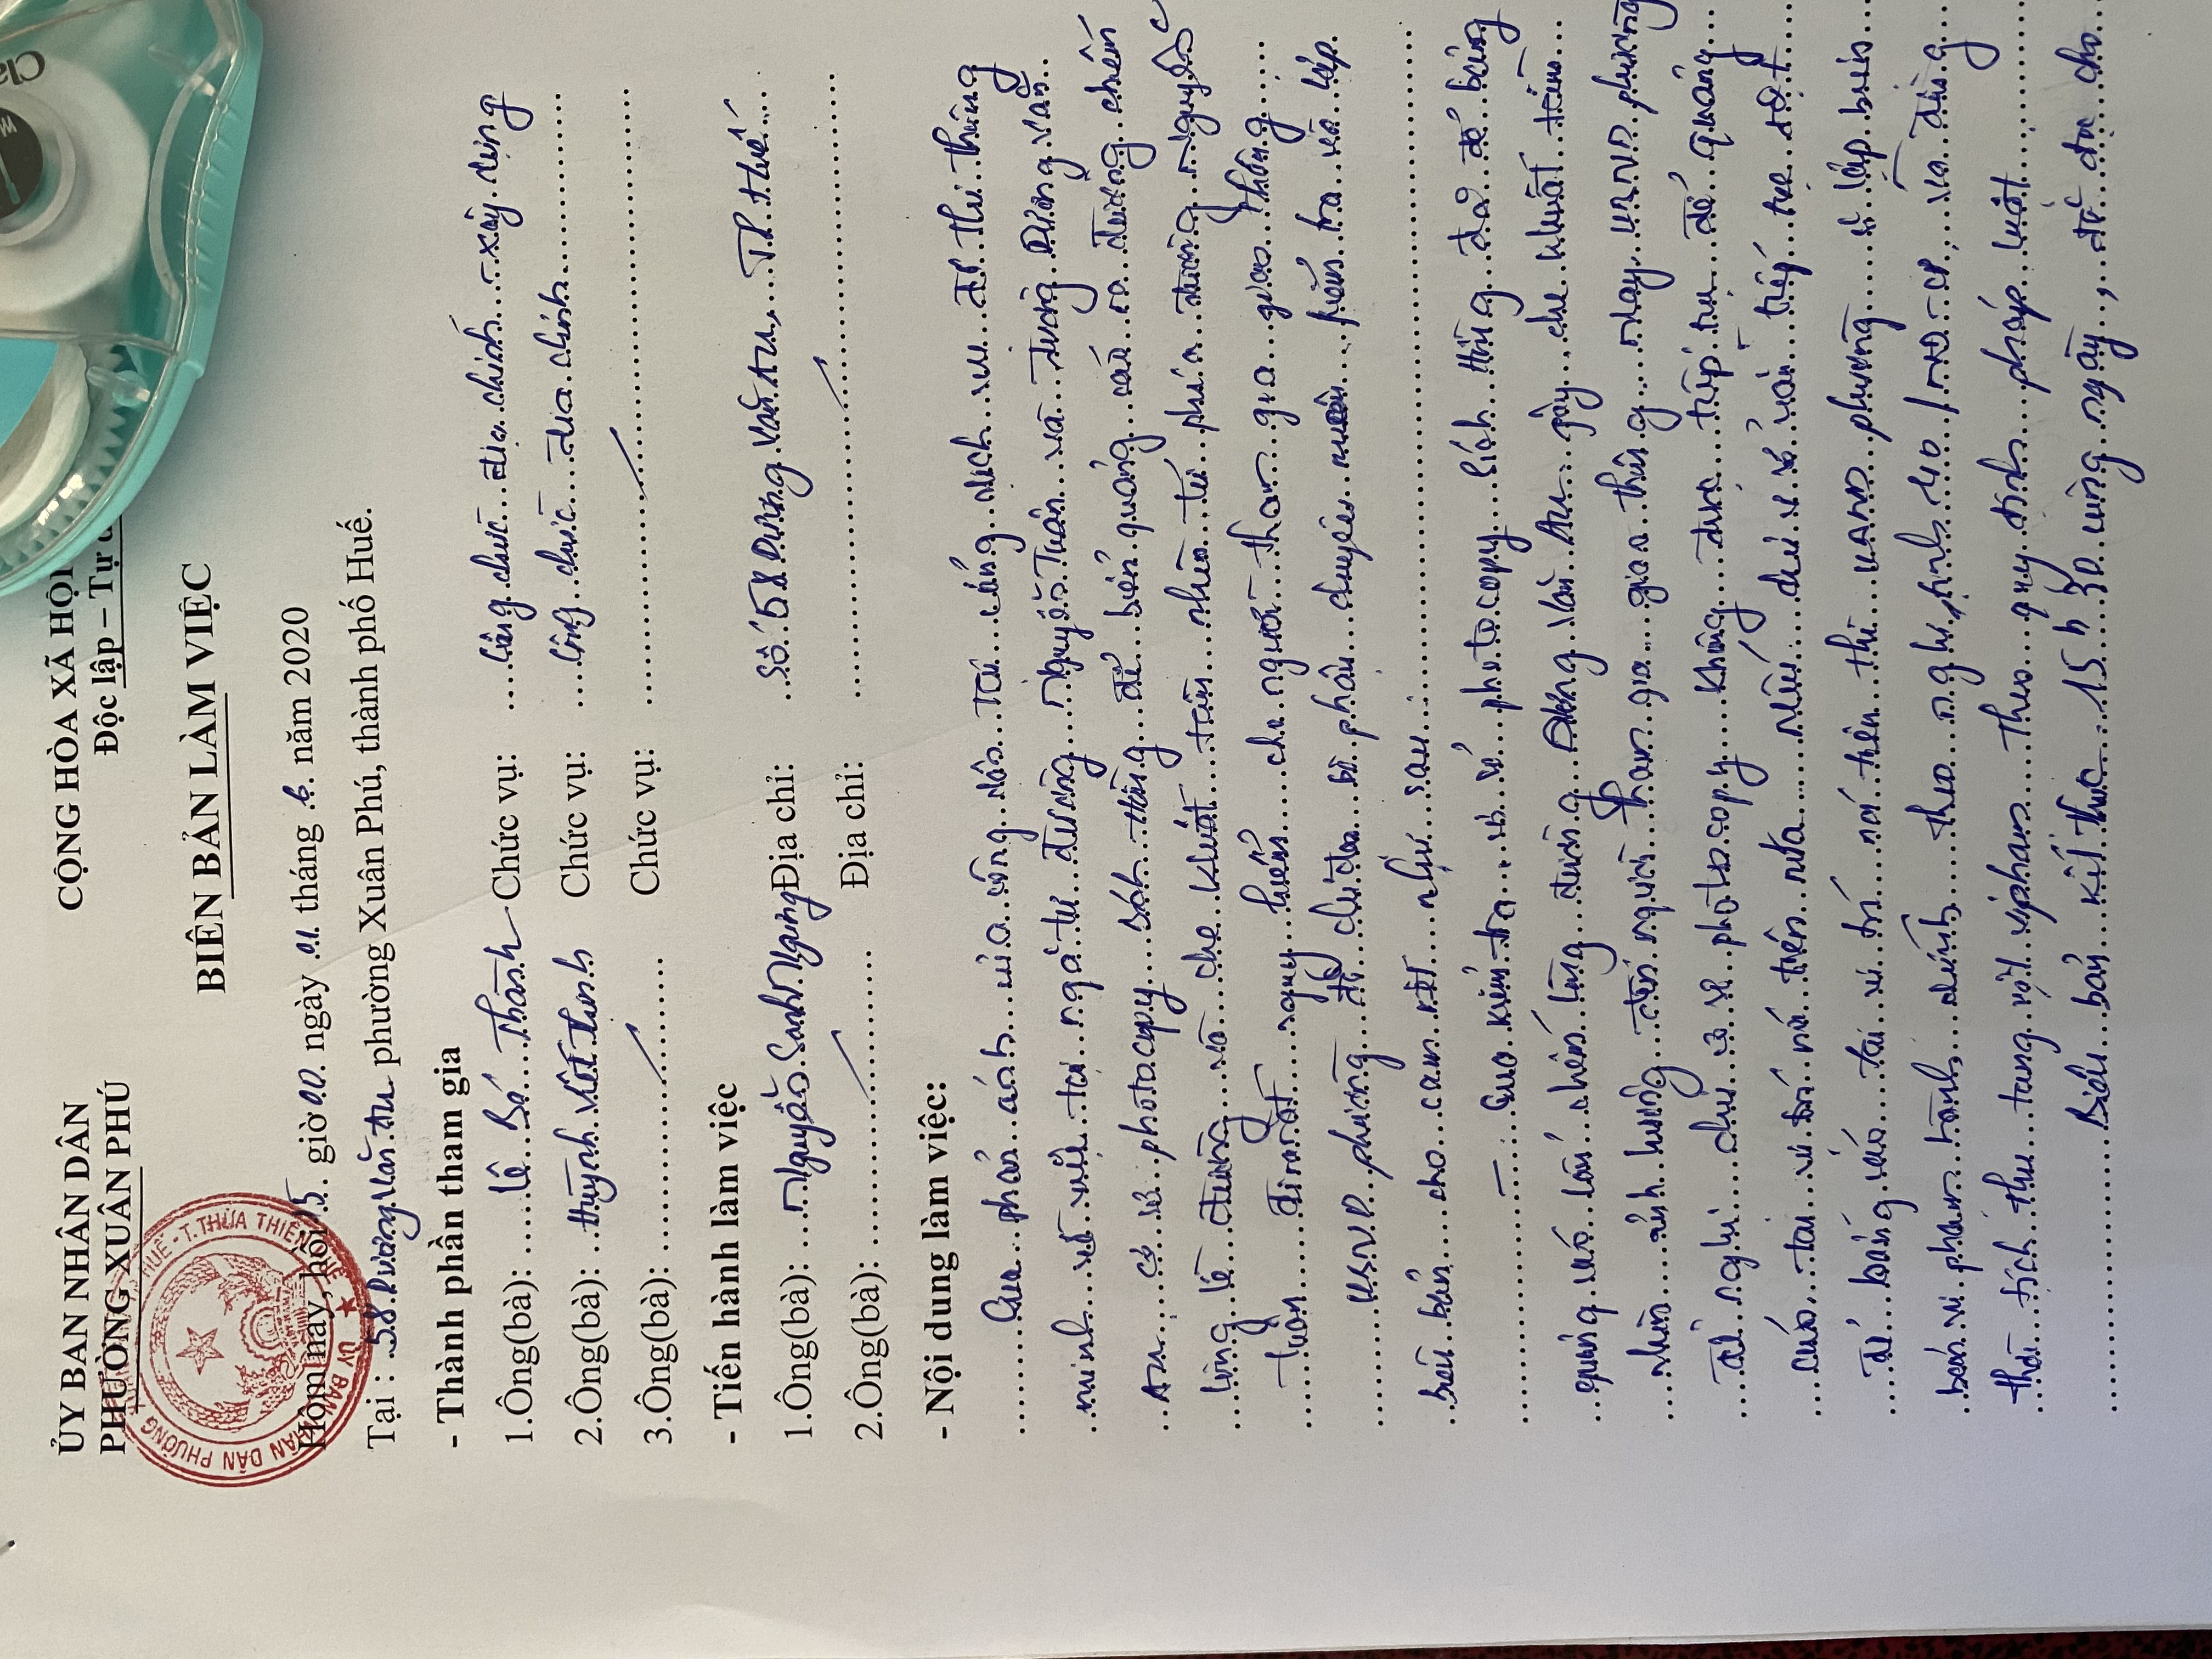 ỦY BAN NHÂN DÂN
PHƯỜNG XUÂN PHÚ
CỘNG HÒA XÃ HỘI
Độc lập – Tự
BIÊN BẢN LÀM VIỆC
Hôm nay, hồi 15 giờ 00 ngày 01 tháng 6 năm 2020
Tại : 58 Dương Văn An phường Xuân Phú, thành phố Huế.
- Thành phần tham gia
1.Ông(bà): Lê Bá Thành Chức vụ: Công chức địa chính - xây dựng
2.Ông(bà): Huỳnh Viết Chức vụ: Công chức địa chính
3.Ông(bà): Chức vụ:
- Tiến hành làm việc
1.Ông(bà): Nguyễn Sanh Địa chỉ: Số 58 Dương Văn An, TP. Huế
2.Ông(bà): Địa chỉ:
- Nội dung làm việc:
Qua phản ánh của công dân Tại cổng dịch vụ đô thị thông
minh về việc tại ngã tư đường Nguyễn Tuân và đường Dương Văn
An có photocopy Hùng để biển quảng cáo ra đường chiếm
lòng lề đường và che khuất tầm nhìn từ phía đường
Tuân nguy hiểm cho người tham gia giao thông
UBND phường đã chỉ đạo bộ phận chuyên môn kiểm tra và lập
biên bản cho cam kết như sau:
- Qua kiểm tra photocopy Hùng đã để bảng
quảng cáo lấn chiếm lòng đường Dương Văn An gây che khuất tầm
nhìn ảnh hưởng đến người tham gia giao thông nay UBND phường
Đề nghị chủ photocopy không được tiếp tục để quảng
cáo tại vị trí nói trên nữa nếu vẫn tiếp tục đặt
để bảng cáo tại vị trí nói trên thì UBND phường sẽ lập biên
bản vi phạm hành chính theo nghị định và đồng
thời tịch thu tang vật vi phạm theo quy định pháp luật
Biên bản kết thúc 15h30 cùng ngày, đã đọc cho